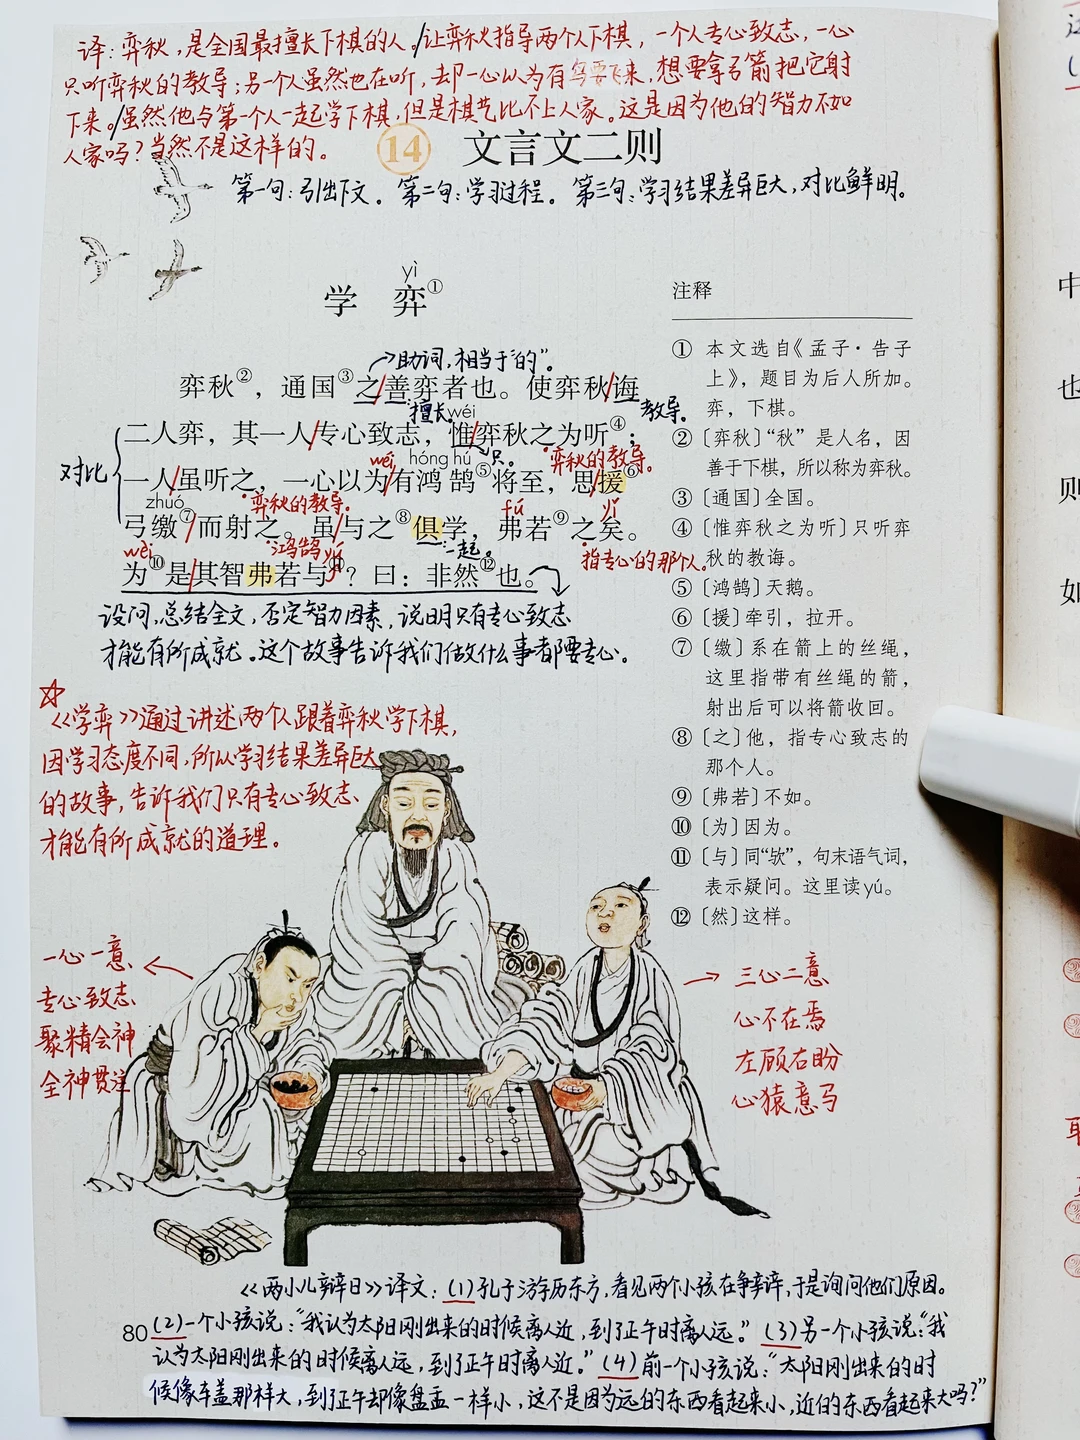 译：弈秋，是全国最擅长下棋的人。/让弈秋指导两个人下棋，一个人专心致志，一心
只听弈秋的教导；另一个人虽然也在听，却一心以为有鸟要飞来，想要拿弓箭把它射
下来。/虽然他与第一个人一起学下棋，但是棋艺比不上人家。这是因为他的智力不如
人家吗？当然不是这样的。
14 文言文二则
第一句：引出下文。第二句：学习过程。第三句：学习结果差异巨大，对比鲜明。
yì
学 弈①
助词，相当于“的”。
弈秋②，通国③之/善弈者也。使弈秋/诲
擅长 wéi 教导。
二人弈，其一人/专心致志，惟/弈秋之为听④；
对比
wéi hóng hú 只。 弈秋的教导。
一人/虽听之，一心以为/有鸿鹄⑤将至，思/援⑥
zhuó 弈秋的教导。 fú yǐ
弓缴⑦/而射之。虽/与之⑧俱学，弗若⑨之矣。
wèi 鸿鹄 yú 一起。 指专心的那个人。
为⑩是/其智弗若与⑪？曰：非然⑫也。
设问，总结全文，否定智力因素，说明只有专心致志
才能有所成就。这个故事告诉我们做什么事都要专心。
注释
① 本文选自《孟子·告子
上》，题目为后人所加。
弈，下棋。
② 〔弈秋〕“秋”是人名，因
善于下棋，所以称为弈秋。
③ 〔通国〕全国。
④ 〔惟弈秋之为听〕只听弈
秋的教诲。
⑤ 〔鸿鹄〕天鹅。
⑥ 〔援〕牵引，拉开。
⑦ 〔缴〕系在箭上的丝绳，
这里指带有丝绳的箭，
射出后可以将箭收回。
⑧ 〔之〕他，指专心致志的
那个人。
⑨ 〔弗若〕不如。
⑩ 〔为〕因为。
⑪ 〔与〕同“欤”，句末语气词，
表示疑问。这里读yú。
⑫ 〔然〕这样。
《学弈》通过讲述两个人跟着弈秋学下棋，
因学习态度不同，所以学习结果差异巨大
的故事，告诉我们只有专心致志、
才能有所成就的道理。
一心一意
专心致志
聚精会神
全神贯注
三心二意
心不在焉
左顾右盼
心猿意马
《两小儿辩日》译文：(1)孔子游学历东方，看见两个小孩在争辩，于是询问他们原因。
80 (2)一个小孩说：“我认为太阳刚出来的时候离人近，到了正午时离人远。” (3)另一个小孩说：“我
认为太阳刚出来的时候离人远，到了正午时离人近。” (4)前一个小孩说：“太阳刚出来的时
候像车盖那样大，到了正午却像盘盂一样小，这不是因为远的东西看起来小，近的东西看起来大吗？”
中
也
则
如